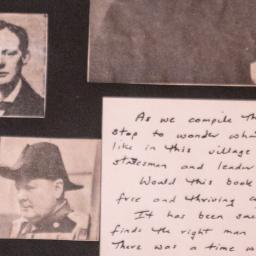 As we compile
stop to wonder
like in this village
statesman and leader
Would this book
free and thriving
It has been
finds the right man
There was a time